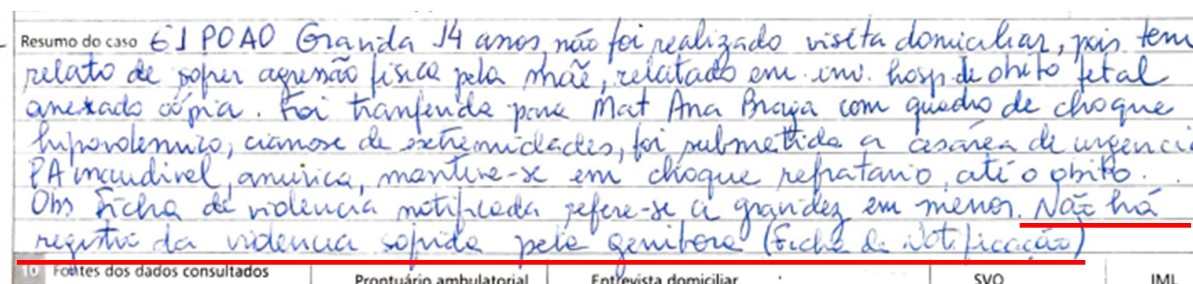 Resumo do caso GJ POAO Gravida 14 anos, não foi realizado visita domiciliar, pois tem
relato de sofrer agressão física pela mãe, relatado em inv. hosp. de obito fetal
anexado cópia. Foi tranferida para Mat Ana Braga com quadro de choque
hipovolemico, cianose de extremidades, foi submetida a cesárea de urgencia
PA inaudivel, anurica, manteve-se em choque refratario, até o obito.
Obs Ficha de violencia notificada refere-se a gravidez em menor. Não há
registro da violencia sofrida pela genitora (Ficha de Notificação)
10 Fontes dos dados consultados
Prontuário ambulatorial Entrevista domiciliar SVO IML